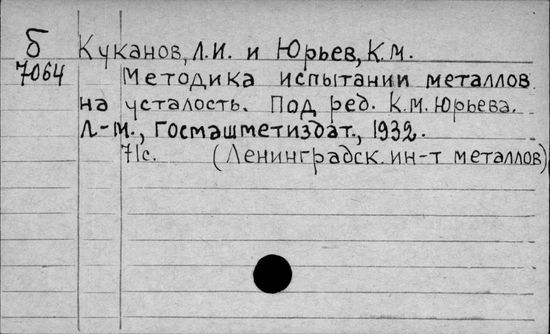 Б Куканов, Л.И. и Юрьев, К.М.
7064 Методика испытании металлов
на усталость. Под ред. К.М. Юрьева.
Л.-М., Госмашметиздат., 1932.
71с. (Ленинградск. ин-т металлов)